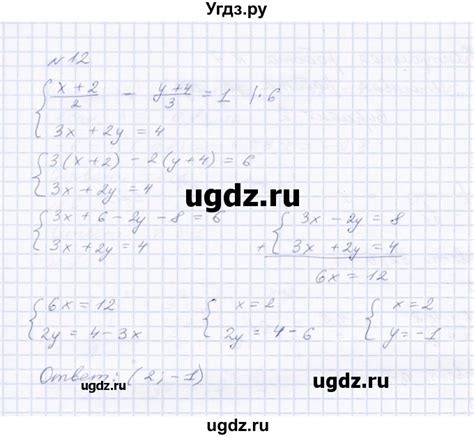 Угдз.ру
№12
{ (x+2)/2 - (y+4)/3 = 1 /·6
3x + 2y = 4
{ 3(x+2) - 2(y+4) = 6
3x + 2y = 4
ugdz.ru
{ 3x + 6 - 2y - 8 = 6
3x + 2y = 4
+ { 3x - 2y = 8
3x + 2y = 4
6x = 12
{ 6x = 12
2y = 4 - 3x
{ x = 2
2y = 4 - 6
{ x = 2
y = -1
ugdz.ru
ugdz.ru
ugdz.ru
Ответ: (2; -1)
ugdz.ru
ugdz.ru